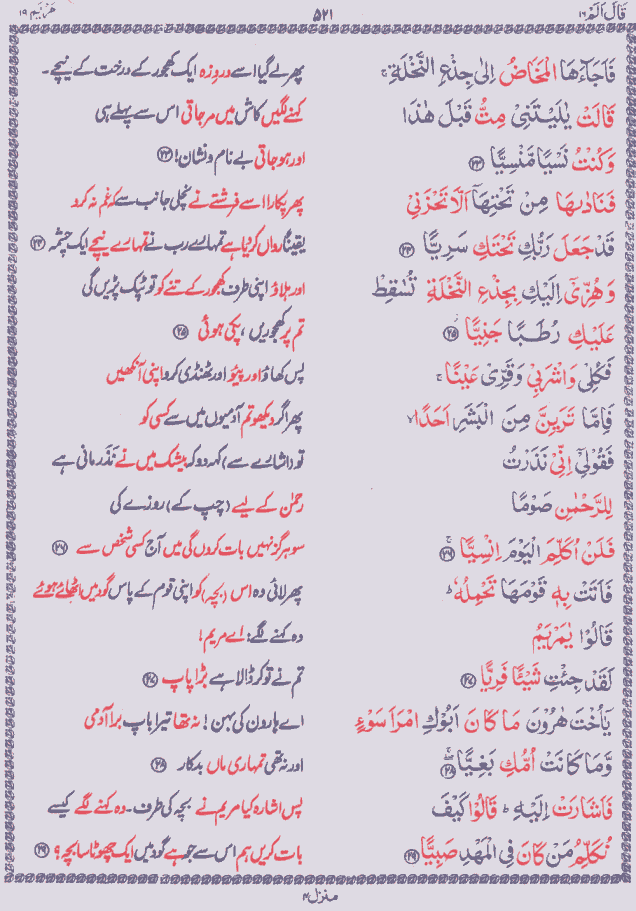 قَالَ اَلَمْ ١٦
٥٢١
مَرْيَم ١٩
فَاَجَآءَهَا الْمَخَاضُ اِلٰى جِذْعِ النَّخْلَةِ ۚ
پھر لے گیا اسے دردِ زہ ایک کھجور کے درخت کے نیچے۔
قَالَتْ يٰلَيْتَنِىْ مِتُّ قَبْلَ هٰذَا
کہنے لگیں کاش میں مر جاتی اس سے پہلے ہی
وَكُنْتُ نَسْيًا مَّنْسِيًّا ﴿٢٣﴾
اور ہو جاتی بے نام و نشان! ﴿٢٣﴾
فَنَادٰىهَا مِنْ تَحْتِهَاۤ اَلَّا تَحْزَنِىْ
پھر پکارا اسے فرشتے نے نچلی جانب سے کہ غم نہ کرو
قَدْ جَعَلَ رَبُّكِ تَحْتَكِ سَرِيًّا ﴿٢٤﴾
یقیناً رواں کر دیا ہے تمہارے رب نے تمہارے نیچے ایک چشمہ ﴿٢٤﴾
وَهُزِّىْۤ اِلَيْكِ بِجِذْعِ النَّخْلَةِ تُسٰقِطْ
اور ہلاؤ اپنی طرف کھجور کے تنے کو تو ٹپک پڑیں گی
عَلَيْكِ رُطَبًا جَنِيًّا ﴿٢٥﴾
تم پر کھجوریں، پکی ہوئی ﴿٢٥﴾
فَكُلِىْ وَاشْرَبِىْ وَقَرِّىْ عَيْنًا ۚ
پس کھاؤ اور پیئو اور ٹھنڈی کرو اپنی آنکھیں
فَاِمَّا تَرَيِنَّ مِنَ الْبَشَرِ اَحَدًا ۙ
پھر اگر دیکھو تم آدمیوں میں سے کسی کو
فَقُوْلِىْۤ اِنِّىْ نَذَرْتُ
تو (اشارے سے) کہہ دو کہ بیشک میں نے نذر مانی ہے
لِلرَّحْمٰنِ صَوْمًا
رحمٰن کے لیے (چپ کے) روزے کی
فَلَنْ اُكَلِّمَ الْيَوْمَ اِنْسِيًّا ﴿٢٦﴾ ۚ
سو ہرگز نہیں بات کروں گی میں آج کسی شخص سے ﴿٢٦﴾
فَاَتَتْ بِهٖ قَوْمَهَا تَحْمِلُهٗ ؕ
پھر لائی وہ اس (بچہ) کو اپنی قوم کے پاس گود میں اٹھائے ہوئے
قَالُوْا يٰمَرْيَمُ
وہ کہنے لگے: اے مریم!
لَقَدْ جِئْتِ شَيْئًا فَرِيًّا ﴿٢٧﴾
تم نے تو کر ڈالا ہے بڑا پاپ ﴿٢٧﴾
يٰۤاُخْتَ هٰرُوْنَ مَا كَانَ اَبُوْكِ امْرَاَ سَوْءٍ
اے ہارون کی بہن! نہ تھا تیرا باپ برا آدمی
وَّمَا كَانَتْ اُمُّكِ بَغِيًّا ﴿٢٨﴾ ۚ
اور نہ تھی تمہاری ماں بدکار ﴿٢٨﴾
فَاَشَارَتْ اِلَيْهِ ؕ قَالُوْا كَيْفَ
پس اشارہ کیا مریم نے بچہ کی طرف۔ وہ کہنے لگے کیسے
نُكَلِّمُ مَنْ كَانَ فِى الْمَهْدِ صَبِيًّا ﴿٢٩﴾
بات کریں ہم اس سے جو ہے گود میں ایک چھوٹا سا بچہ؟ ﴿٢٩﴾
منزل ٤